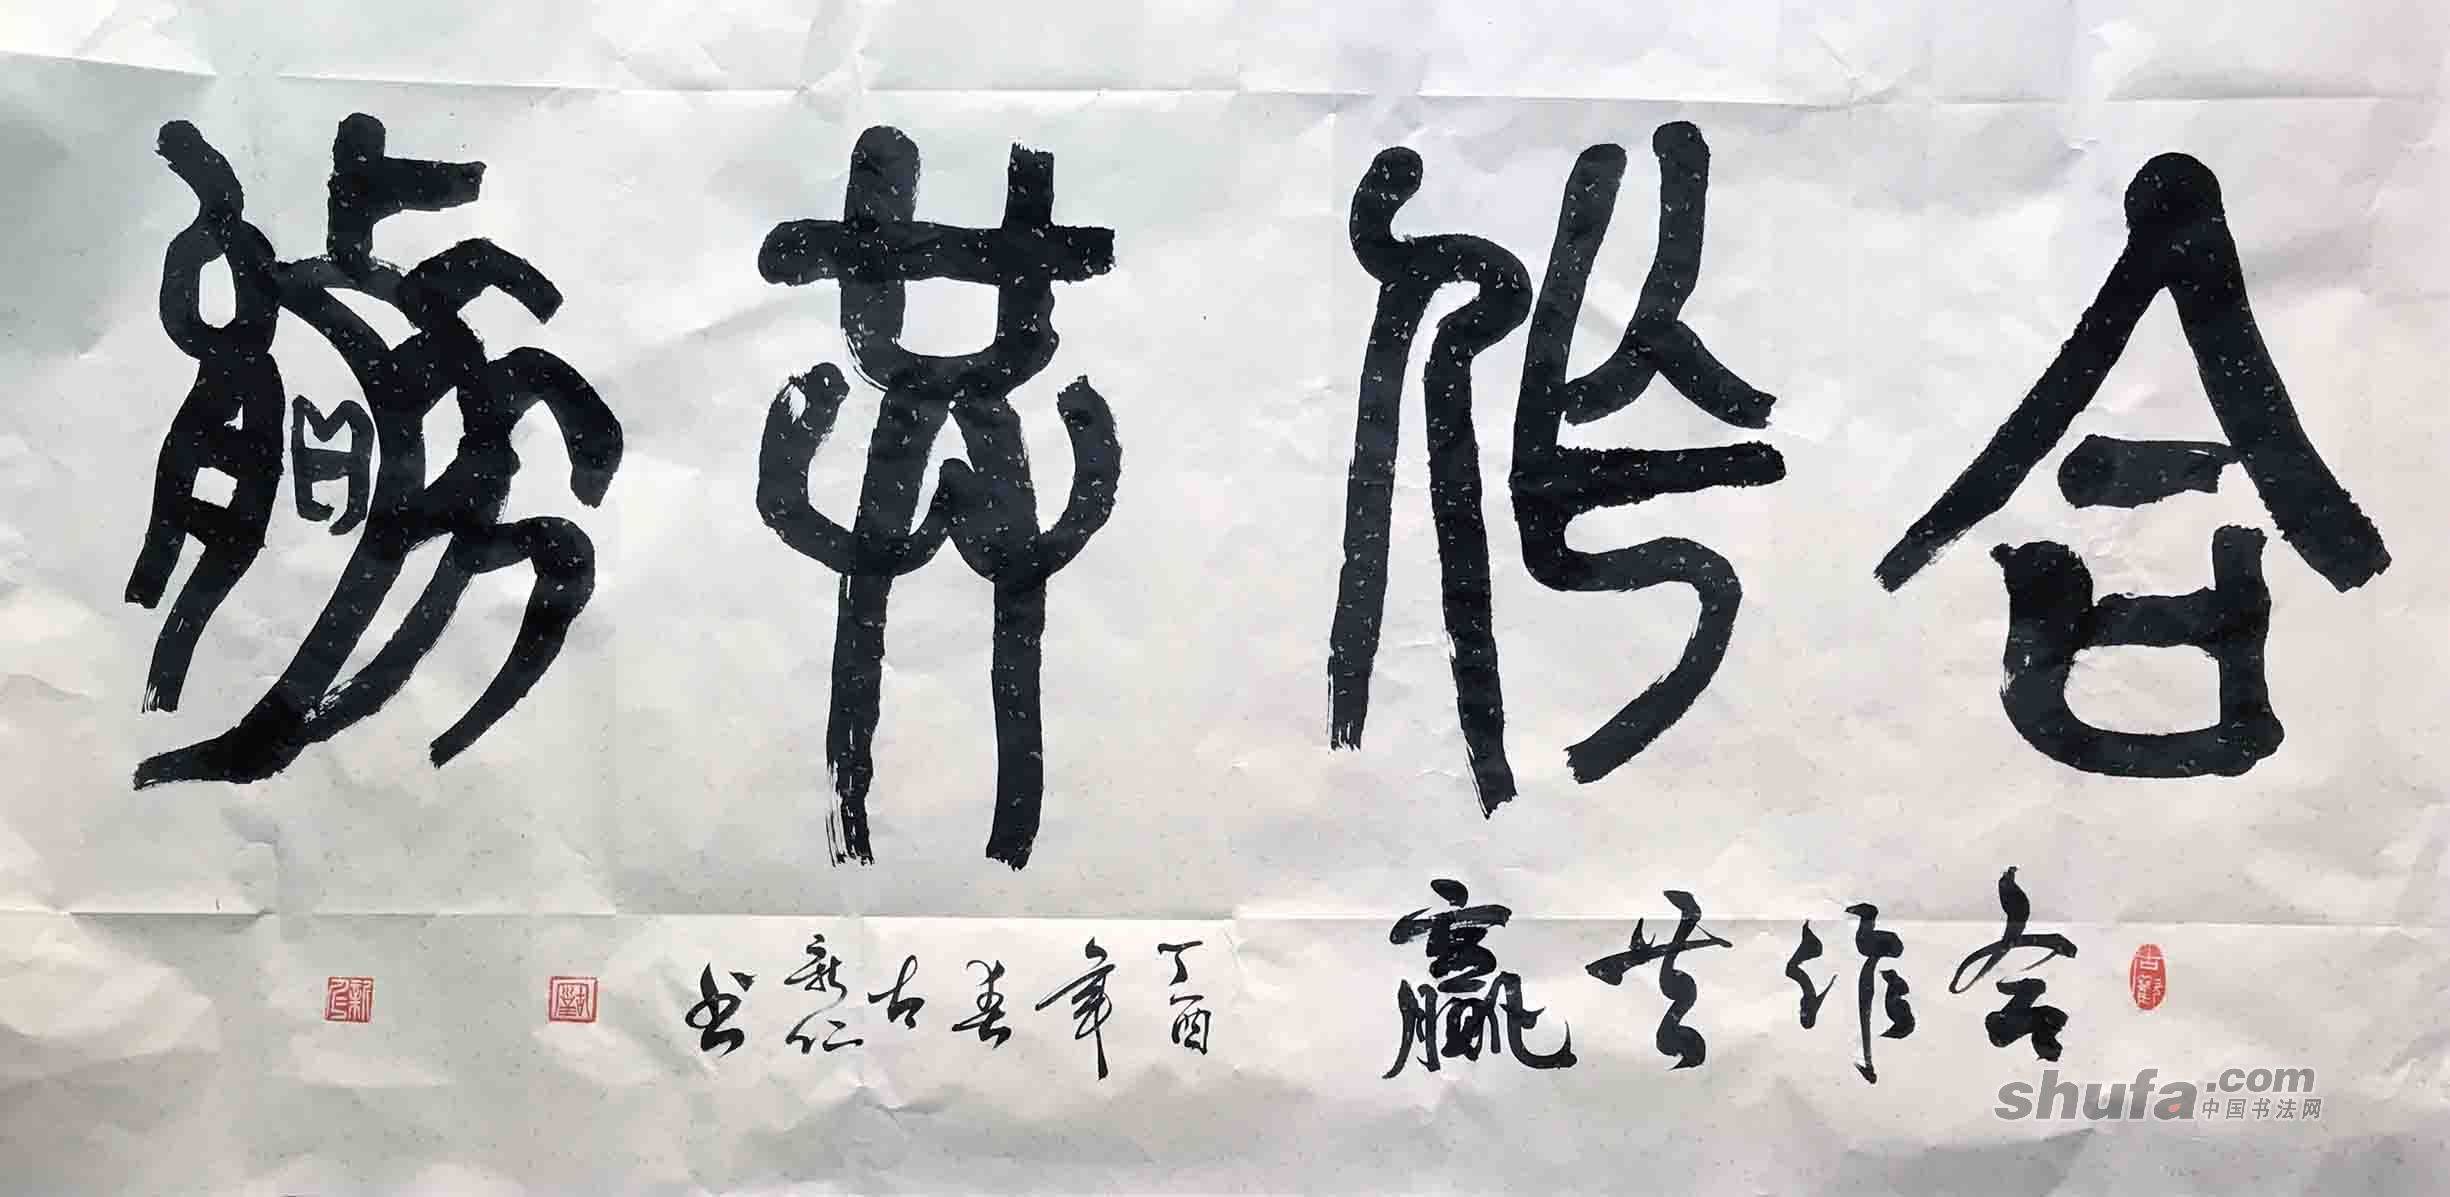 合作共赢
合作共赢
丁酉年春古新仁书
shufa.com
中国书法网